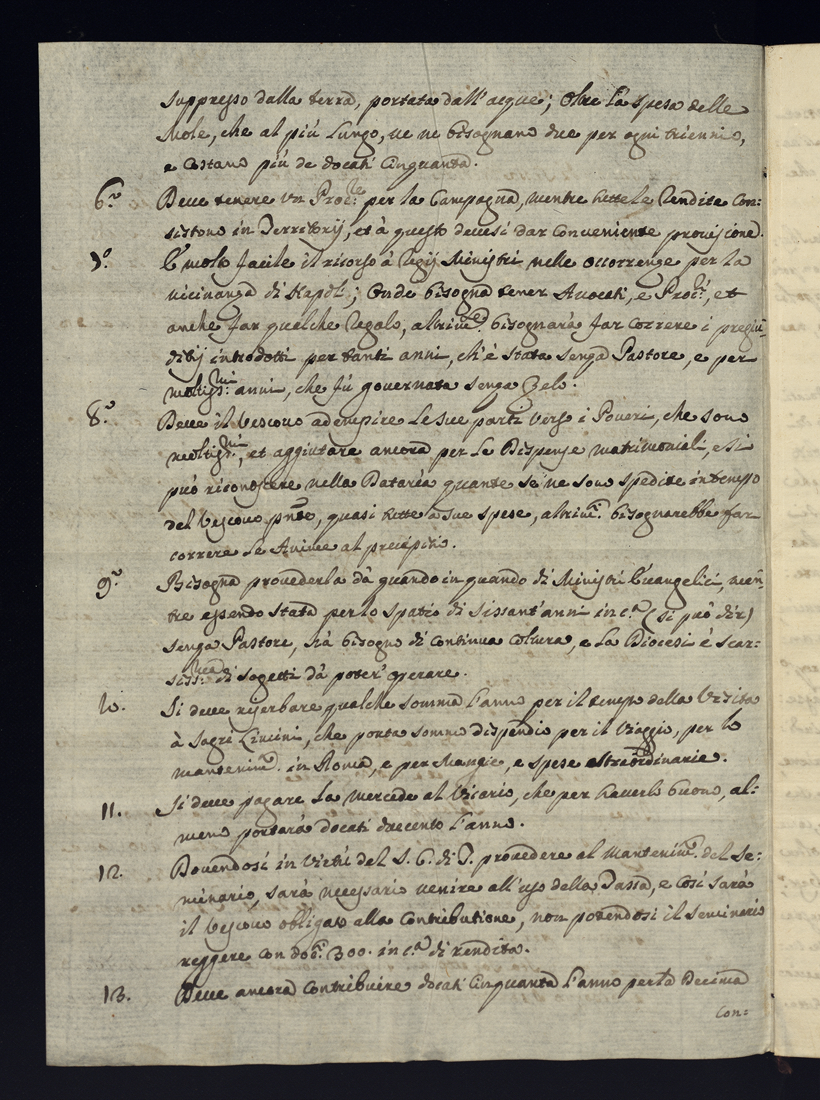 suppresso dalla terra, portata dall'acque; Oltre la spesa delle
Mole, che al più lungo, ve ne bisognano due per ogni triennio,
e Costano più de docati Cinquanta.
6.º Deve tenere un Proc.re per la Campagna, mentre tutte le Rendite Con:
sistono in Territorij, et à questo devesi dar Conveniente provisione.
7.º È molto facile il ricorso à Regij Ministri nelle occorrenze per la
vicinanza di Napoli; Onde bisogna tener Avocati, e Proc.ri, et
anche far qualche regalo, altrim.e bisognarà far correre i pregiu=
ditij introdotti per tanti anni, ch'è stata senza Pastore, e per
moltiss.mi anni, che fù governata senza Zelo.
8.º Deve il Vescovo adempire le sue parti verso i Poveri, che sono
moltiss.mi, et aggiutare ancora per le Dispense matrimoniali, e si
può riconoscere nella Dataria quante se ne sono spedite in tempo
del Vescovo pnte, quasi tutte à sue spese, altrim.e bisognarebbe far
correre le Anime al precipitio.
9.º Bisogna provederla dà quando in quando di Ministri Evangelici, men=
tre essendo stata per lo spatio di sissant'anni in c.a (si può dir)
senza Pastore, stà bisogno di continua Coltura, e la Diocesi è scar=
siss.ma di sogetti dà poter' operare.
10. Si deve riserbare qualche somma l'anno per il tempo della Visita
à Sagri Limini, che porta sommo dispendio per il Viaggio, per lo
mantenim.to in Roma, e per Mangie, e spese estraordinarie.
11. Si deve pagare la mercede al Vicario, che per haverlo buono, al=
meno portarà docati ducento l'anno.
12. Dovendosi in Virtù del S. C. di T. provedere al Mantenim.to del Se=
minario, sarà necessario venire all'uso della Tassa, e Così sarà
il Vescovo obligato alla Contributione, non potendosi il seminario
reggere con doc.ti 300. in c.a di rendita.
13. Deve ancora Contribuire docati Cinquanta l'anno per la Decima
Con=